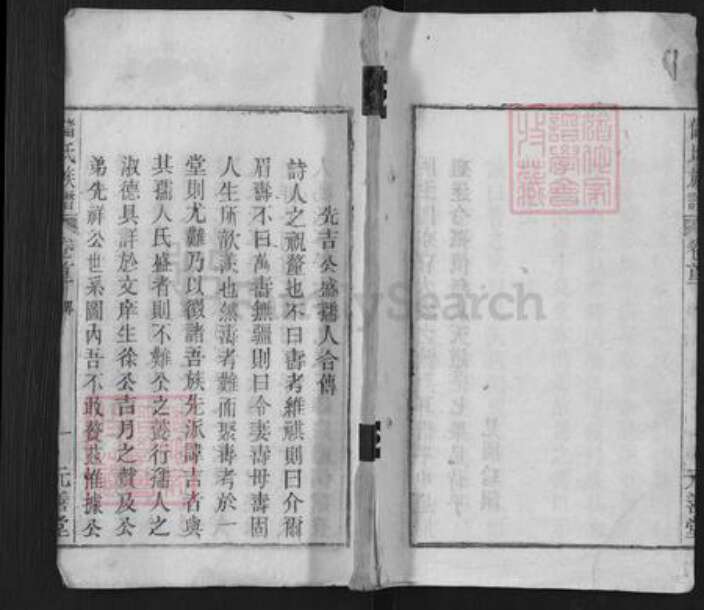 先吉公盛孺人合傳
詩人之祝釐也不曰壽考維祺則曰介爾
眉壽不曰萬壽無疆則曰令妻壽母壽固
人生所歆羨也然壽考難而聚壽考於一
堂則尤難乃以徵諸吾族先派諱吉者與
其孺人氏盛者則不難公之懿行孺人之
淑德具詳於文庠生徐公吉月之贊及公
弟先祥公世系圖內吾不敢贅茲惟據公
氏族譜 卷首 傳 一 元善堂
族譜 卷首 元善堂
FamilySearch